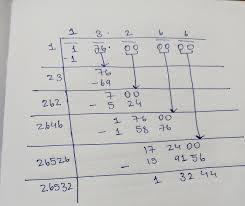 1 3. 2 6 6
1 1 76. 00 00 00
-1
23 76
-69
262 7 00
- 5 24
2646 1 76 00
- 1 58 76
26526 17 24 00
- 15 91 56
26532 1 32 44